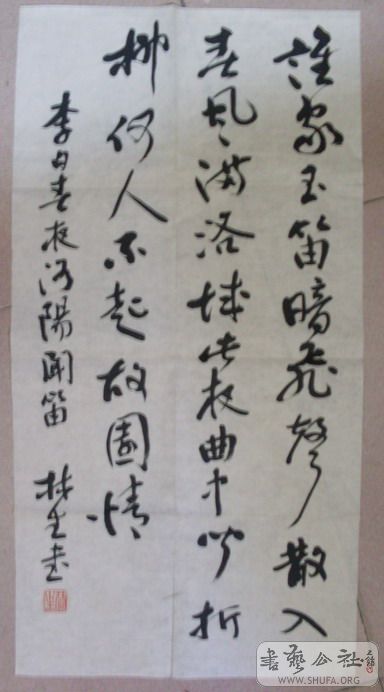 誰家玉笛暗飛聲散入
春風满洛城此夜曲中聞折
柳何人不起故園情
李白春夜洛陽聞笛 林生书
書藝公社
WWW.SHUFA.ORG